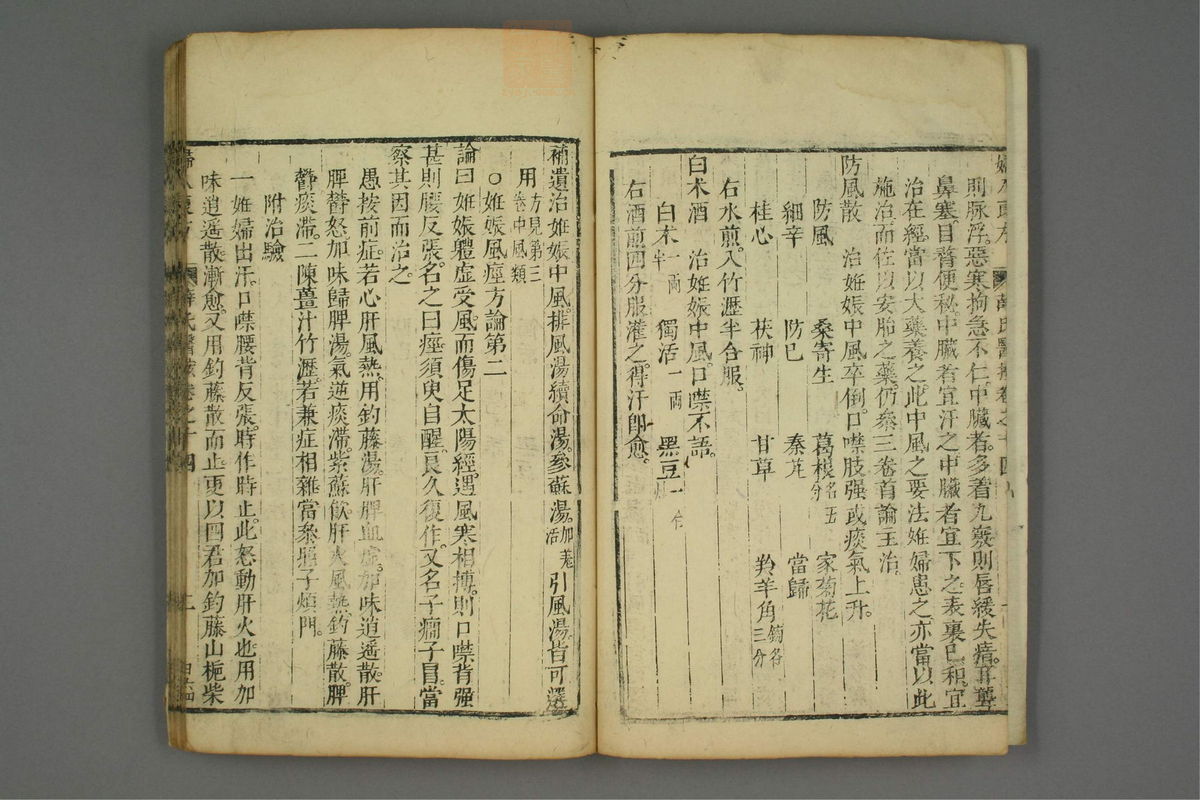 則脉浮惡寒拘急不仁中臓者多着九竅則唇緩失瘖耳聾
鼻塞目瞀便秘中腑者宜汗之中臓者宜下之表裏已和宜
治在經當以大藥養之此中風之要法姙婦患之亦當以此
施治而佐以安胎之藥仍叅三卷首論主治
防風散 治姙娠中風卒倒口噤肢强或痰氣上升
防風 桑寄生 葛根各五分 家菊花
細辛 防已 秦艽 當歸
桂心 茯神 甘草 羚羊角鎊各三分
右水煎入竹瀝半合服
白术酒 治姙娠中風口噤不語
白术一兩半 獨活一兩 黑豆一合
右酒煎四分服灌之得汗即愈
補遺治姙娠中風排風湯續命湯參蘇湯加羗活引風湯皆可選
用方見第三卷中風類
○姙娠風痙方論第二
論曰姙娠體虛受風而傷足太陽經遇風寒相搏則口噤背强
甚則腰反張名之曰痙須臾自醒良久復作又名子癇子冒當
察其因而治之
愚按前症若心肝風熱用釣藤湯肝脾血虛加味逍遥散肝
脾鬱怒加味歸脾湯氣逆痰滯紫蘇飲肝火風熱釣藤散脾
鬱痰滯二陳薑汁竹瀝若兼症相雜當叅子煩門
附治驗
一姙婦出汗口噤腰背反張時作時止此怒動肝火也用加
味逍遥散漸愈又用釣藤散而止更以四君加釣藤山梔柴